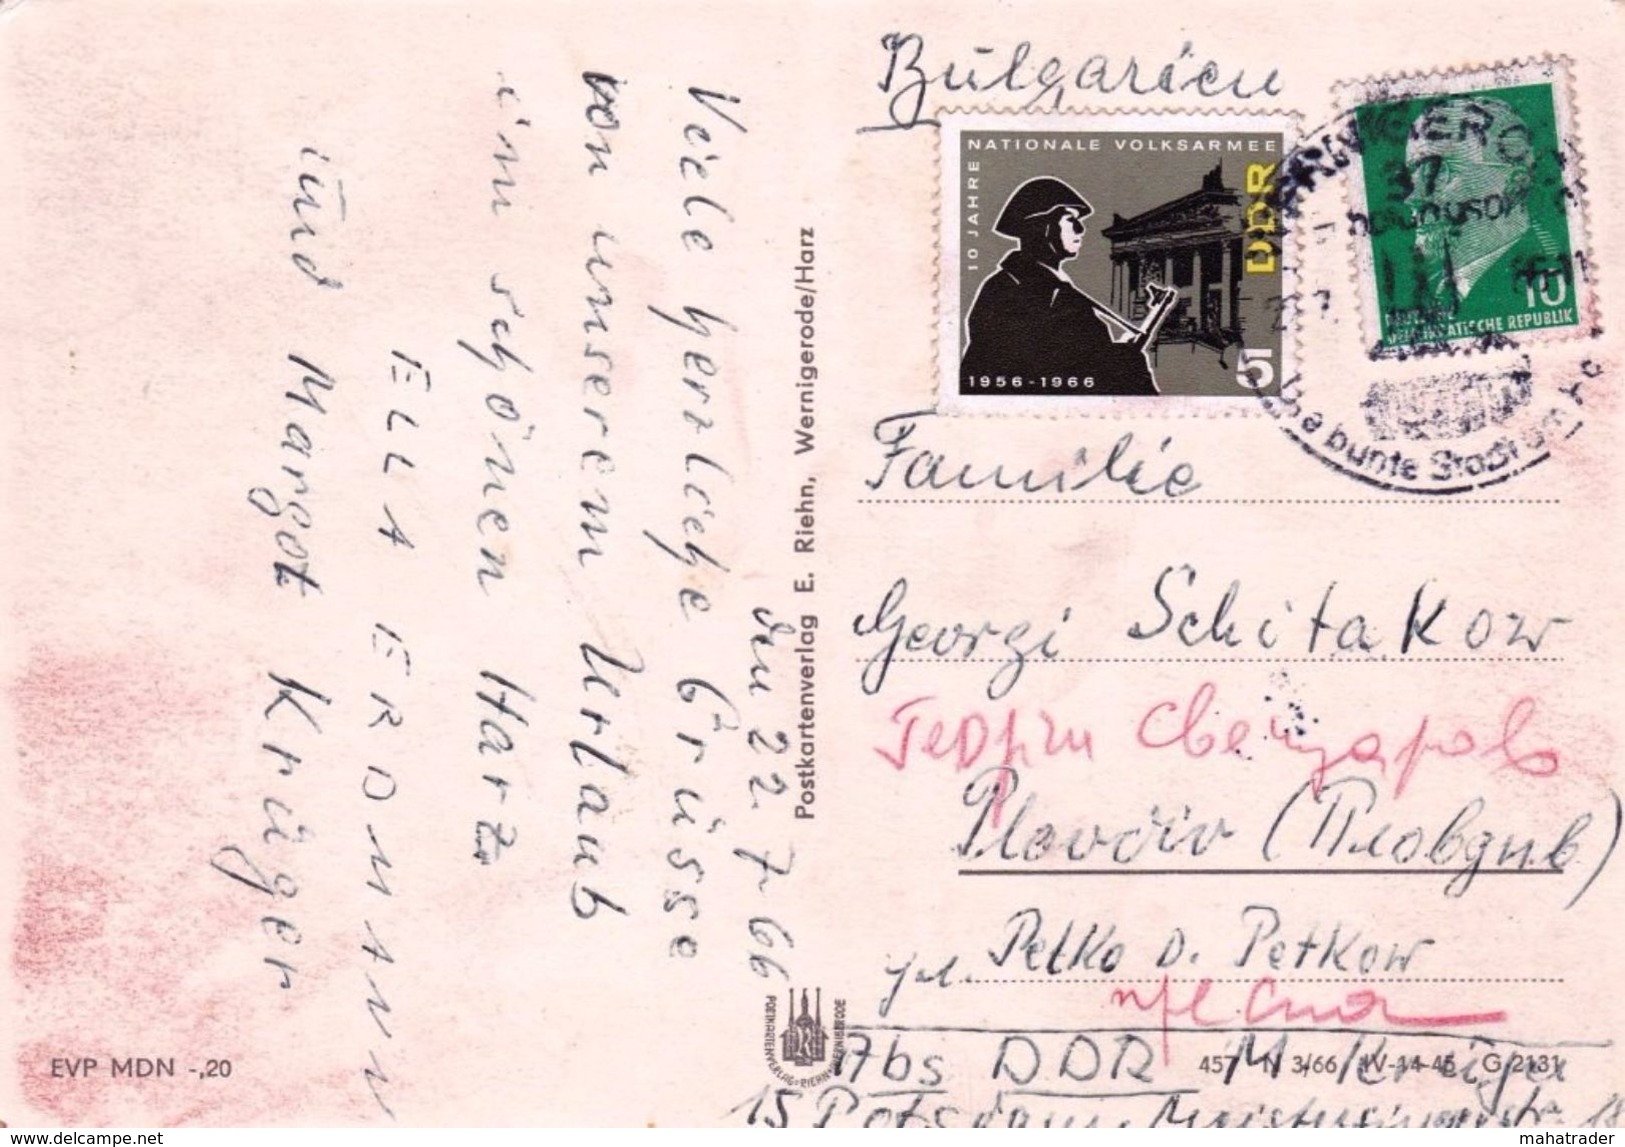 den 22.7.66
Viele herzliche Grüsse
von unserem Urlaub
im schönen Harz
ELLA ERDMANN
und Margot Krüger
Postkartenverlag E. Riehn, Wernigerode/Harz
EVP MDN -,20
POSTKARTENVERLAG · RIEHN · WERNIGERODE
Bulgarien
NATIONALE VOLKSARMEE
10 JAHRE
DDR
1956-1966
5
10
DEMOKRATISCHE REPUBLIK
WERNIGERODE
37
bunte Stadt am
Familie
Georgi Schitakow
Георги
Plovdiv (Пловдив)
ул. Petko D. Petkow
457 N 3/66 IV-14-45 G 2131
Abs DDR M Krüger
15 Potsdam, Meistersingerstr. 18
www.delcampe.net
mahatrader